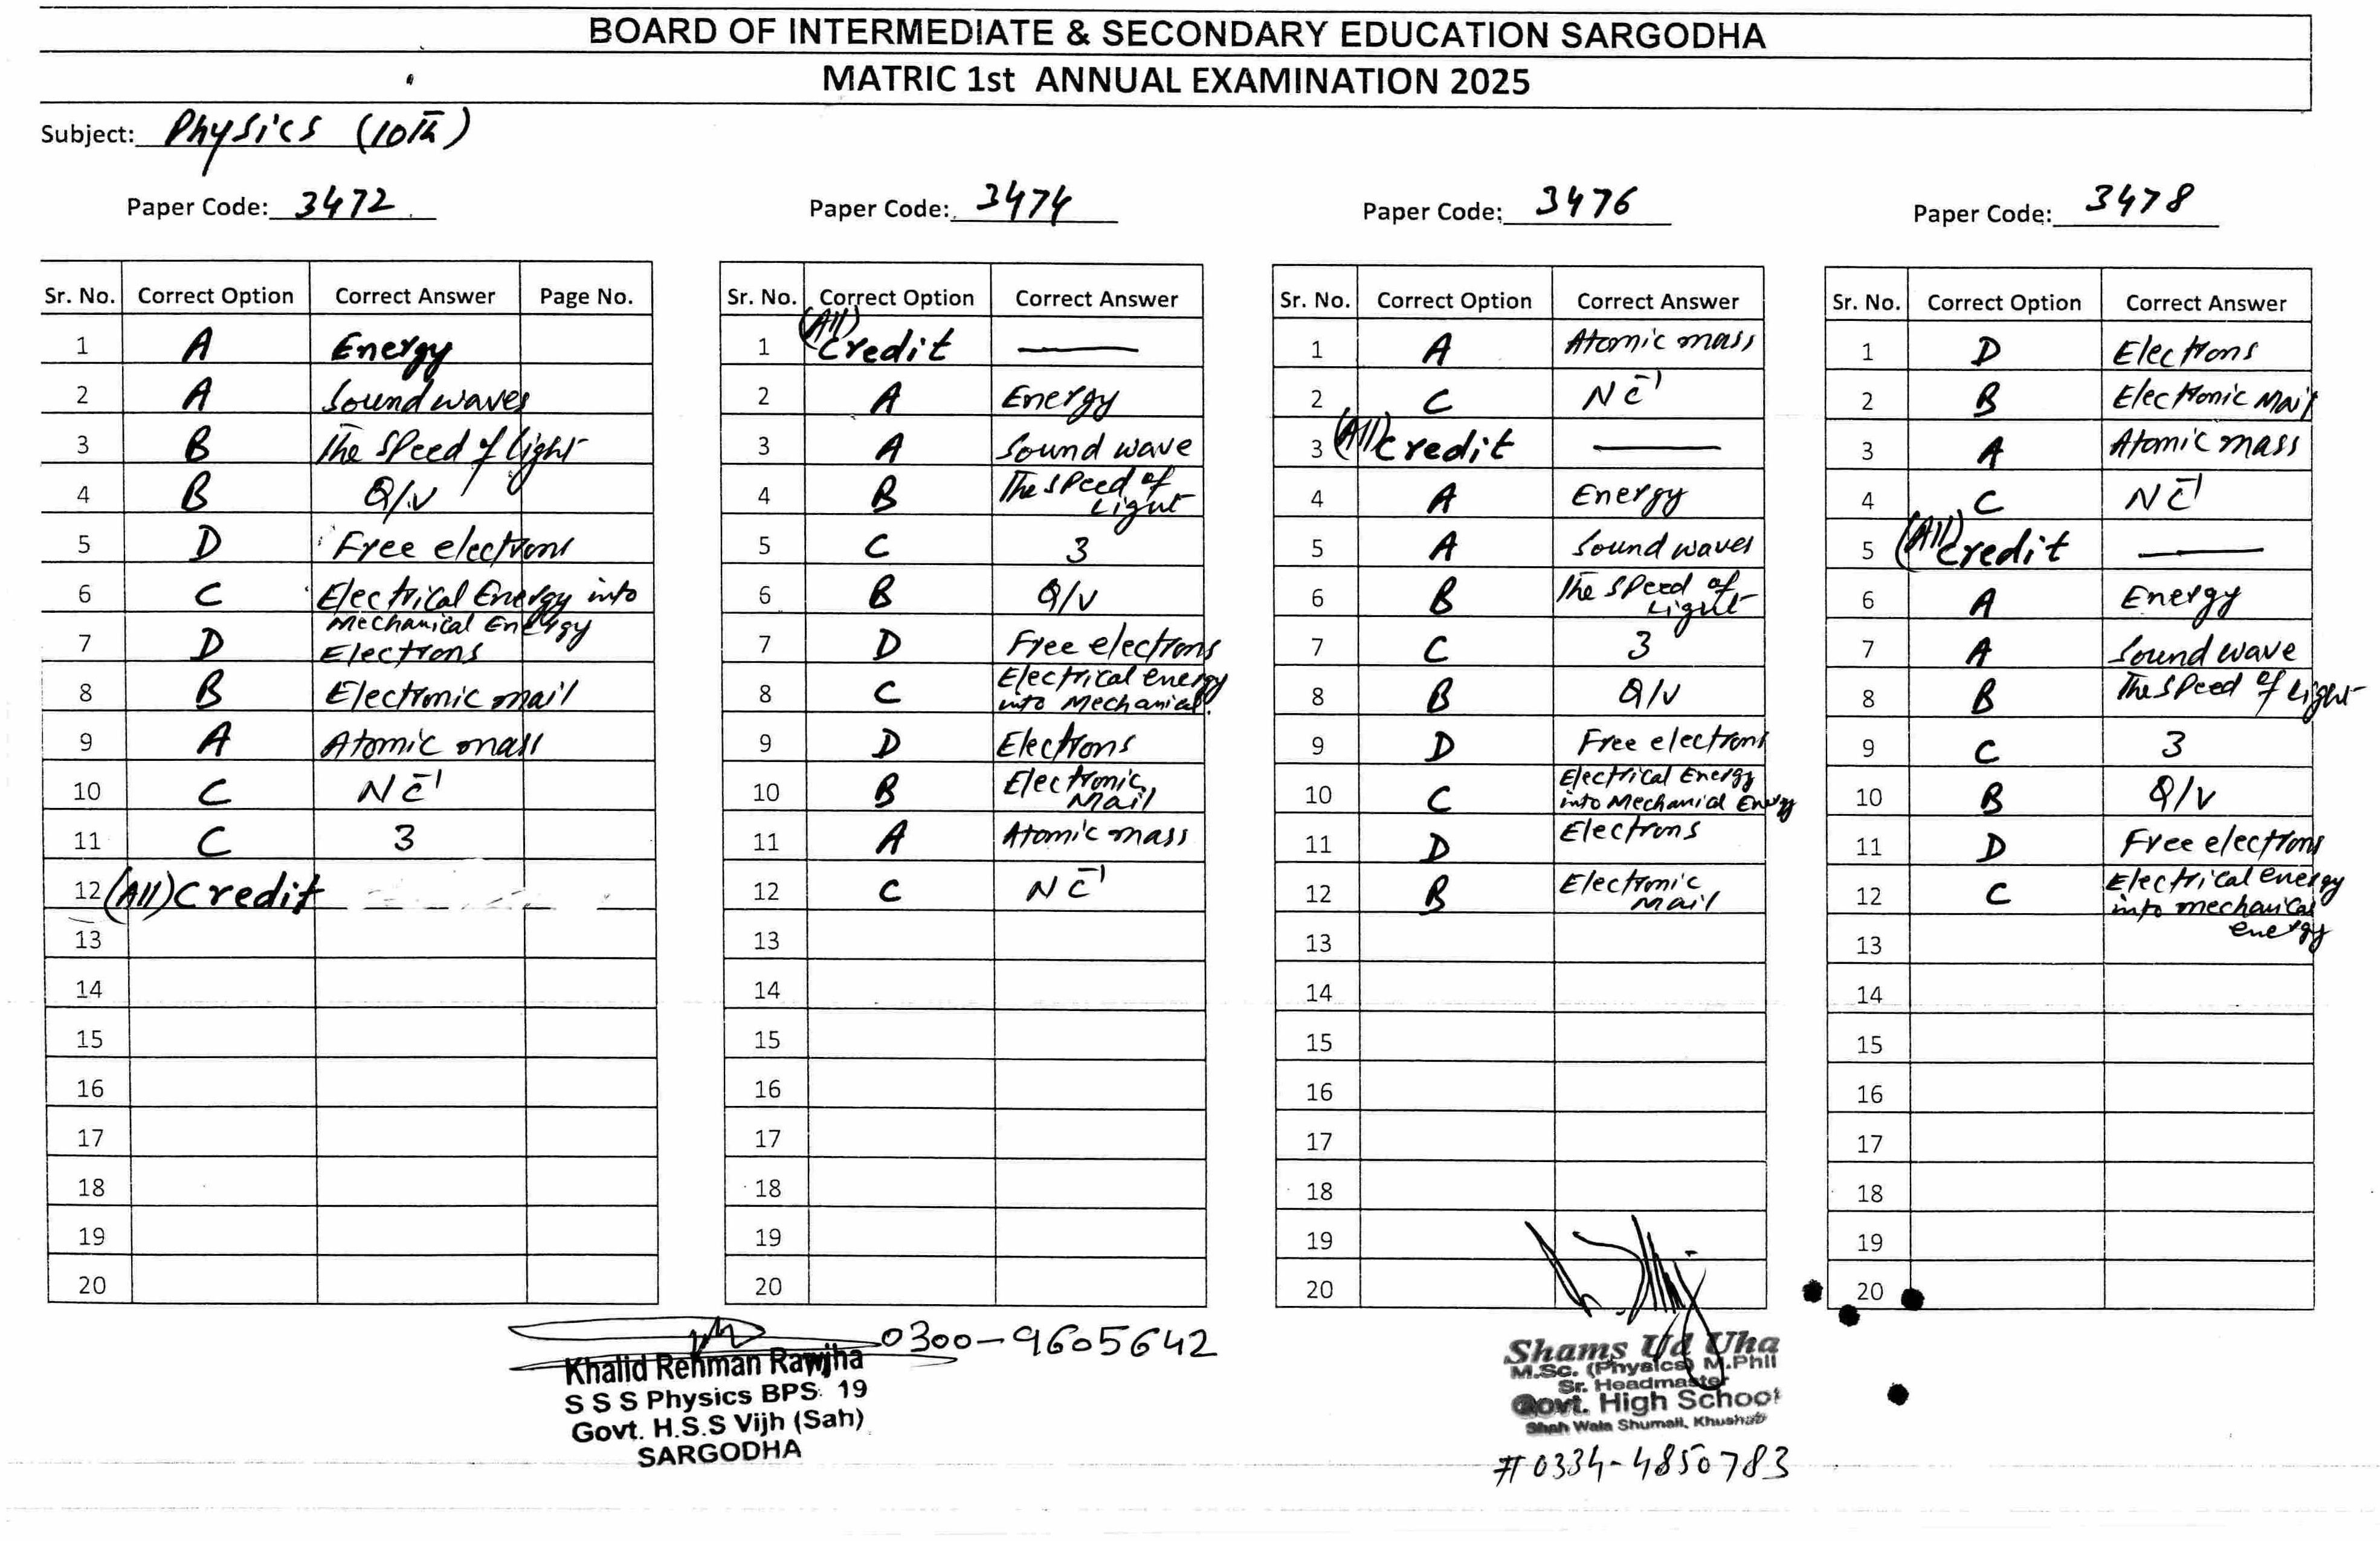 BOARD OF INTERMEDIATE & SECONDARY EDUCATION SARGODHA
MATRIC 1st ANNUAL EXAMINATION 2025
Subject: Physics (10th)
Paper Code: 3472
Sr. No. Correct Option Correct Answer Page No.
1 A Energy
2 A Sound waves
3 B The Speed of light
4 B Q/V
5 D Free electrons
6 C Electrical Energy into
Mechanical Energy
7 D Electrons
8 B Electronic mail
9 A Atomic mass
10 C NC⁻¹
11 C 3
12 (All) Credit
13
14
15
16
17
18
19
20
Paper Code: 3474
Sr. No. Correct Option Correct Answer
1 (All) Credit —
2 A Energy
3 A Sound wave
4 B The speed of
Light
5 C 3
6 B Q/V
7 D Free electrons
8 C Electrical energy
into Mechanical
9 D Electrons
10 B Electronic
Mail
11 A Atomic mass
12 C NC⁻¹
13
14
15
16
17
18
19
20
Paper Code: 3476
Sr. No. Correct Option Correct Answer
1 A Atomic mass
2 C NC⁻¹
3 (All) Credit —
4 A Energy
5 A Sound waves
6 B The speed of
Light
7 C 3
8 B Q/V
9 D Free electrons
10 C Electrical Energy
into Mechanical Energy
11 D Electrons
12 B Electronic
Mail
13
14
15
16
17
18
19
20
Paper Code: 3478
Sr. No. Correct Option Correct Answer
1 D Electrons
2 B Electronic Mail
3 A Atomic mass
4 C NC⁻¹
5 (All) Credit —
6 A Energy
7 A Sound wave
8 B The Speed of Light
9 C 3
10 B Q/V
11 D Free electrons
12 C Electrical energy
into mechanical
energy
13
14
15
16
17
18
19
20
0300-9605642
Khalid Rehman Rawjha
S S S Physics BPS: 19
Govt. H.S.S Vijh (Sah)
SARGODHA
Shams Ud Uha
M.Sc. (Physics) M.Phil
Sr. Headmaster
Govt. High School
Shah Wala Shumali, Khushab
# 0334-4850783